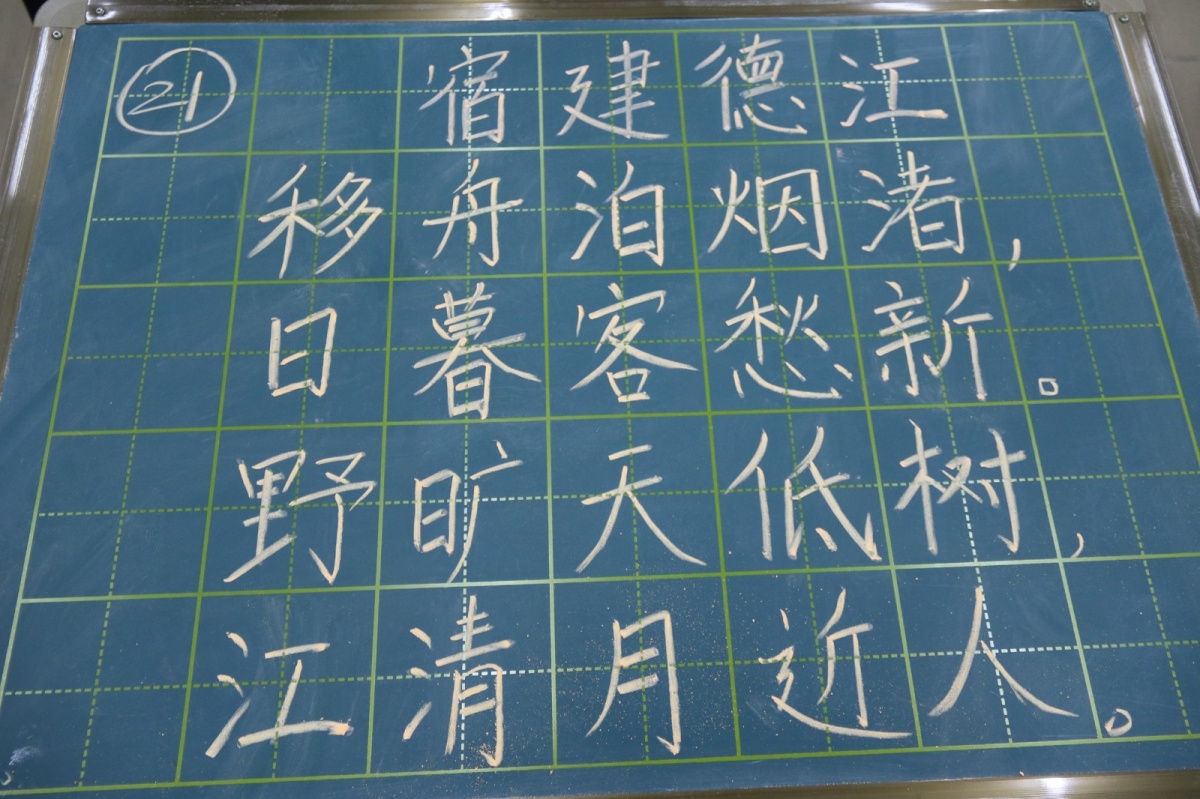 ㉑ 宿建德江
移舟泊烟渚,
日暮客愁新。
野旷天低树,
江清月近人。